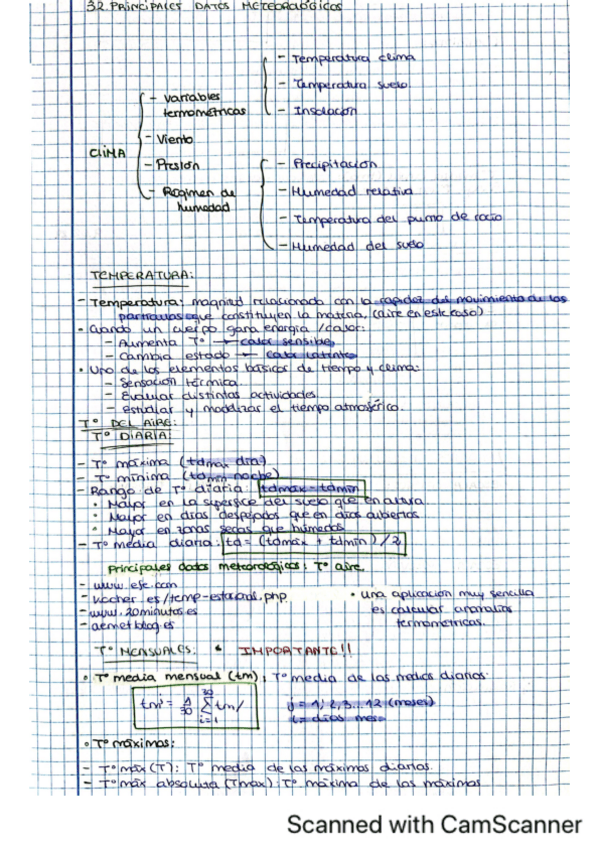 3.2 PRINCIPALES DATOS METEOROLÓGICOS
CLIMA
- Variables termométricas
- Temperatura clima
- Temperatura suelo
- Insolación
- Viento
- Presión
- Régimen de humedad
- Precipitación
- Humedad relativa
- Temperatura del punto de rocío
- Humedad del suelo
TEMPERATURA:
- Temperatura: magnitud relacionada con la rapidez del movimiento de las
partículas que constituyen la materia. (aire en este caso)
• Cuando un cuerpo gana energía / calor:
- Aumenta Tº → calor sensible
- Cambia estado → calor latente
• Uno de los elementos básicos de tiempo y clima:
- Sensación térmica.
- Evaluar distintas actividades
- estudiar y modelizar el tiempo atmosférico.
Tº DEL AIRE:
Tº DIARIA:
- Tº máxima (tdmax día)
- Tº mínima (tdmin noche)
- Rango de Tº diaria tdmax - tdmin
• Mayor en la superfice del suelo que en altura
• Mayor en días despejados que en días cubiertos
• Mayor en zonas secas que húmedas
- Tº media diaria: td = (tdmax + tdmin) / 2
Principales datos meteorológicos: Tº aire
- www.
es/temp-estacional.php
- www.20minutos.es
- aemetblog.es
• una aplicación muy sencilla
es calcular anomalías
termométricas.
Tº MENSUALES: * IMPORTANTE!!
• Tº media mensual (tm): Tº media de las medias diarias.
j = 1, 2, 3... 12 (meses)
i = días mes
• Tº máximas:
- Tº máx (T): Tº media de las máximas diarias.
- Tº máx absoluta (Tmax): Tº máxima de las máximas
Scanned with CamScanner